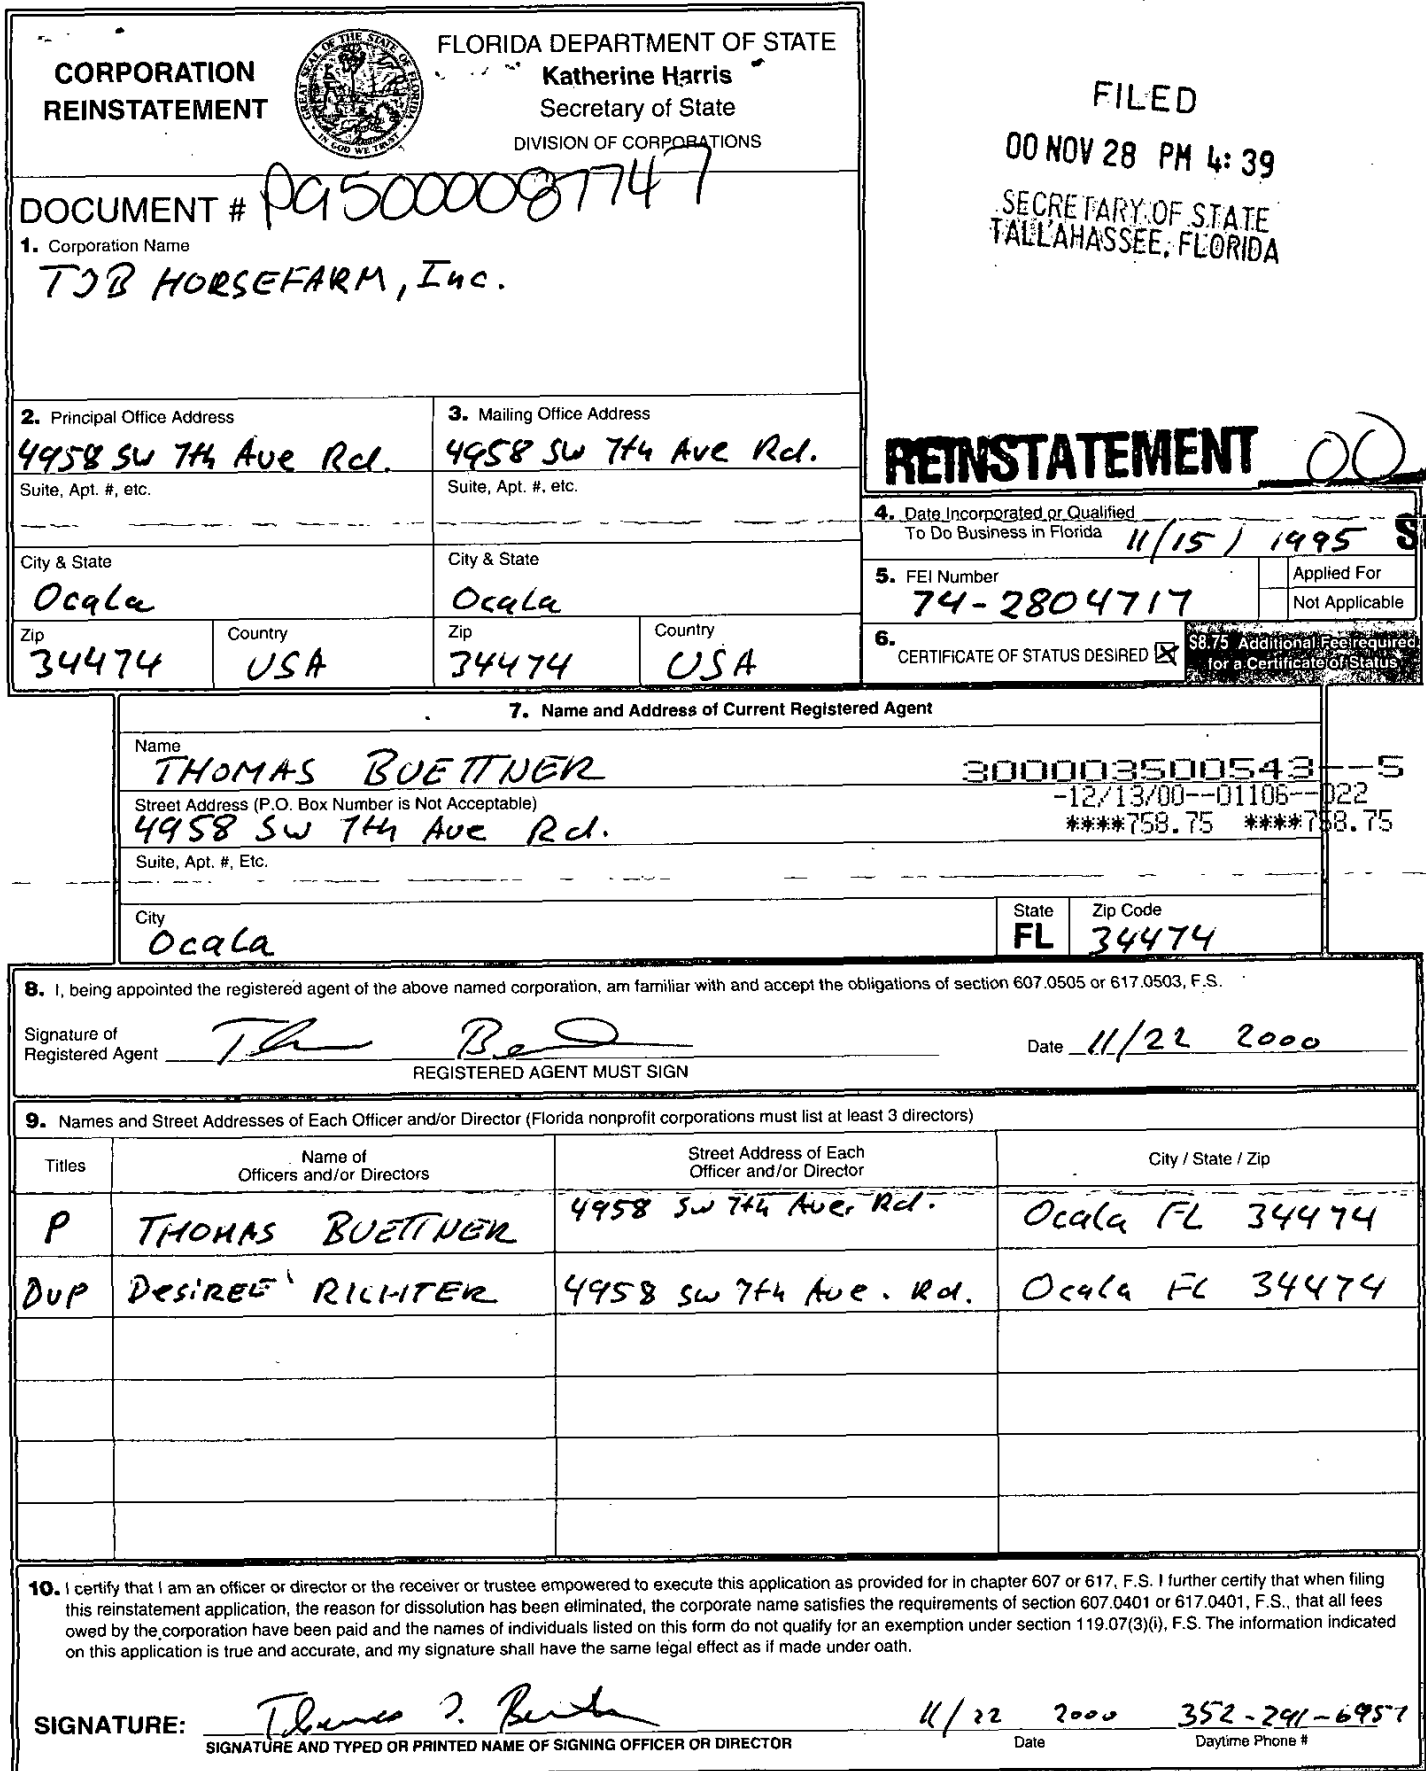 CORPORATION
REINSTATEMENT
GREAT SEAL OF THE STATE OF FLORIDA
IN GOD WE TRUST
FLORIDA DEPARTMENT OF STATE
Katherine Harris
Secretary of State
DIVISION OF CORPORATIONS
FILED
00 NOV 28 PM 4:39
SECRETARY OF STATE
TALLAHASSEE, FLORIDA
DOCUMENT # P95000087747
1. Corporation Name
TJB HORSEFARM, Inc.
2. Principal Office Address
4958 SW 7th Ave Rd.
Suite, Apt. #, etc.
City & State
Ocala
Zip
34474
Country
USA
3. Mailing Office Address
4958 SW 7th Ave Rd.
Suite, Apt. #, etc.
City & State
Ocala
Zip
34474
Country
USA
REINSTATEMENT 00
4. Date Incorporated or Qualified
To Do Business in Florida 11/15/1995
S
5. FEI Number
74-2804717
Applied For
Not Applicable
6. CERTIFICATE OF STATUS DESIRED
$8.75 Additional Fee required
for a Certificate of Status
7. Name and Address of Current Registered Agent
Name
THOMAS BUETTNER
300003500543--5
-12/13/00--01106--022
****758.75 ****758.75
Street Address (P.O. Box Number is Not Acceptable)
4958 SW 7th Ave Rd.
Suite, Apt. #, Etc.
City
Ocala
State
FL
Zip Code
34474
8. I, being appointed the registered agent of the above named corporation, am familiar with and accept the obligations of section 607.0505 or 617.0503, F.S.
Signature of
Registered Agent
Date 11/22 2000
REGISTERED AGENT MUST SIGN
9. Names and Street Addresses of Each Officer and/or Director (Florida nonprofit corporations must list at least 3 directors)
Titles
Name of
Officers and/or Directors
Street Address of Each
Officer and/or Director
City / State / Zip
P THOMAS BUETTNER 4958 SW 7th Ave. Rd. Ocala FL 34474
DVP DESIREE' RICHTER 4958 SW 7th Ave. Rd. Ocala FL 34474
10. I certify that I am an officer or director or the receiver or trustee empowered to execute this application as provided for in chapter 607 or 617, F.S. I further certify that when filing
this reinstatement application, the reason for dissolution has been eliminated, the corporate name satisfies the requirements of section 607.0401 or 617.0401, F.S., that all fees
owed by the corporation have been paid and the names of individuals listed on this form do not qualify for an exemption under section 119.07(3)(i), F.S. The information indicated
on this application is true and accurate, and my signature shall have the same legal effect as if made under oath.
SIGNATURE: 11/22 2000 352-291-6957
SIGNATURE AND TYPED OR PRINTED NAME OF SIGNING OFFICER OR DIRECTOR
Date
Daytime Phone #